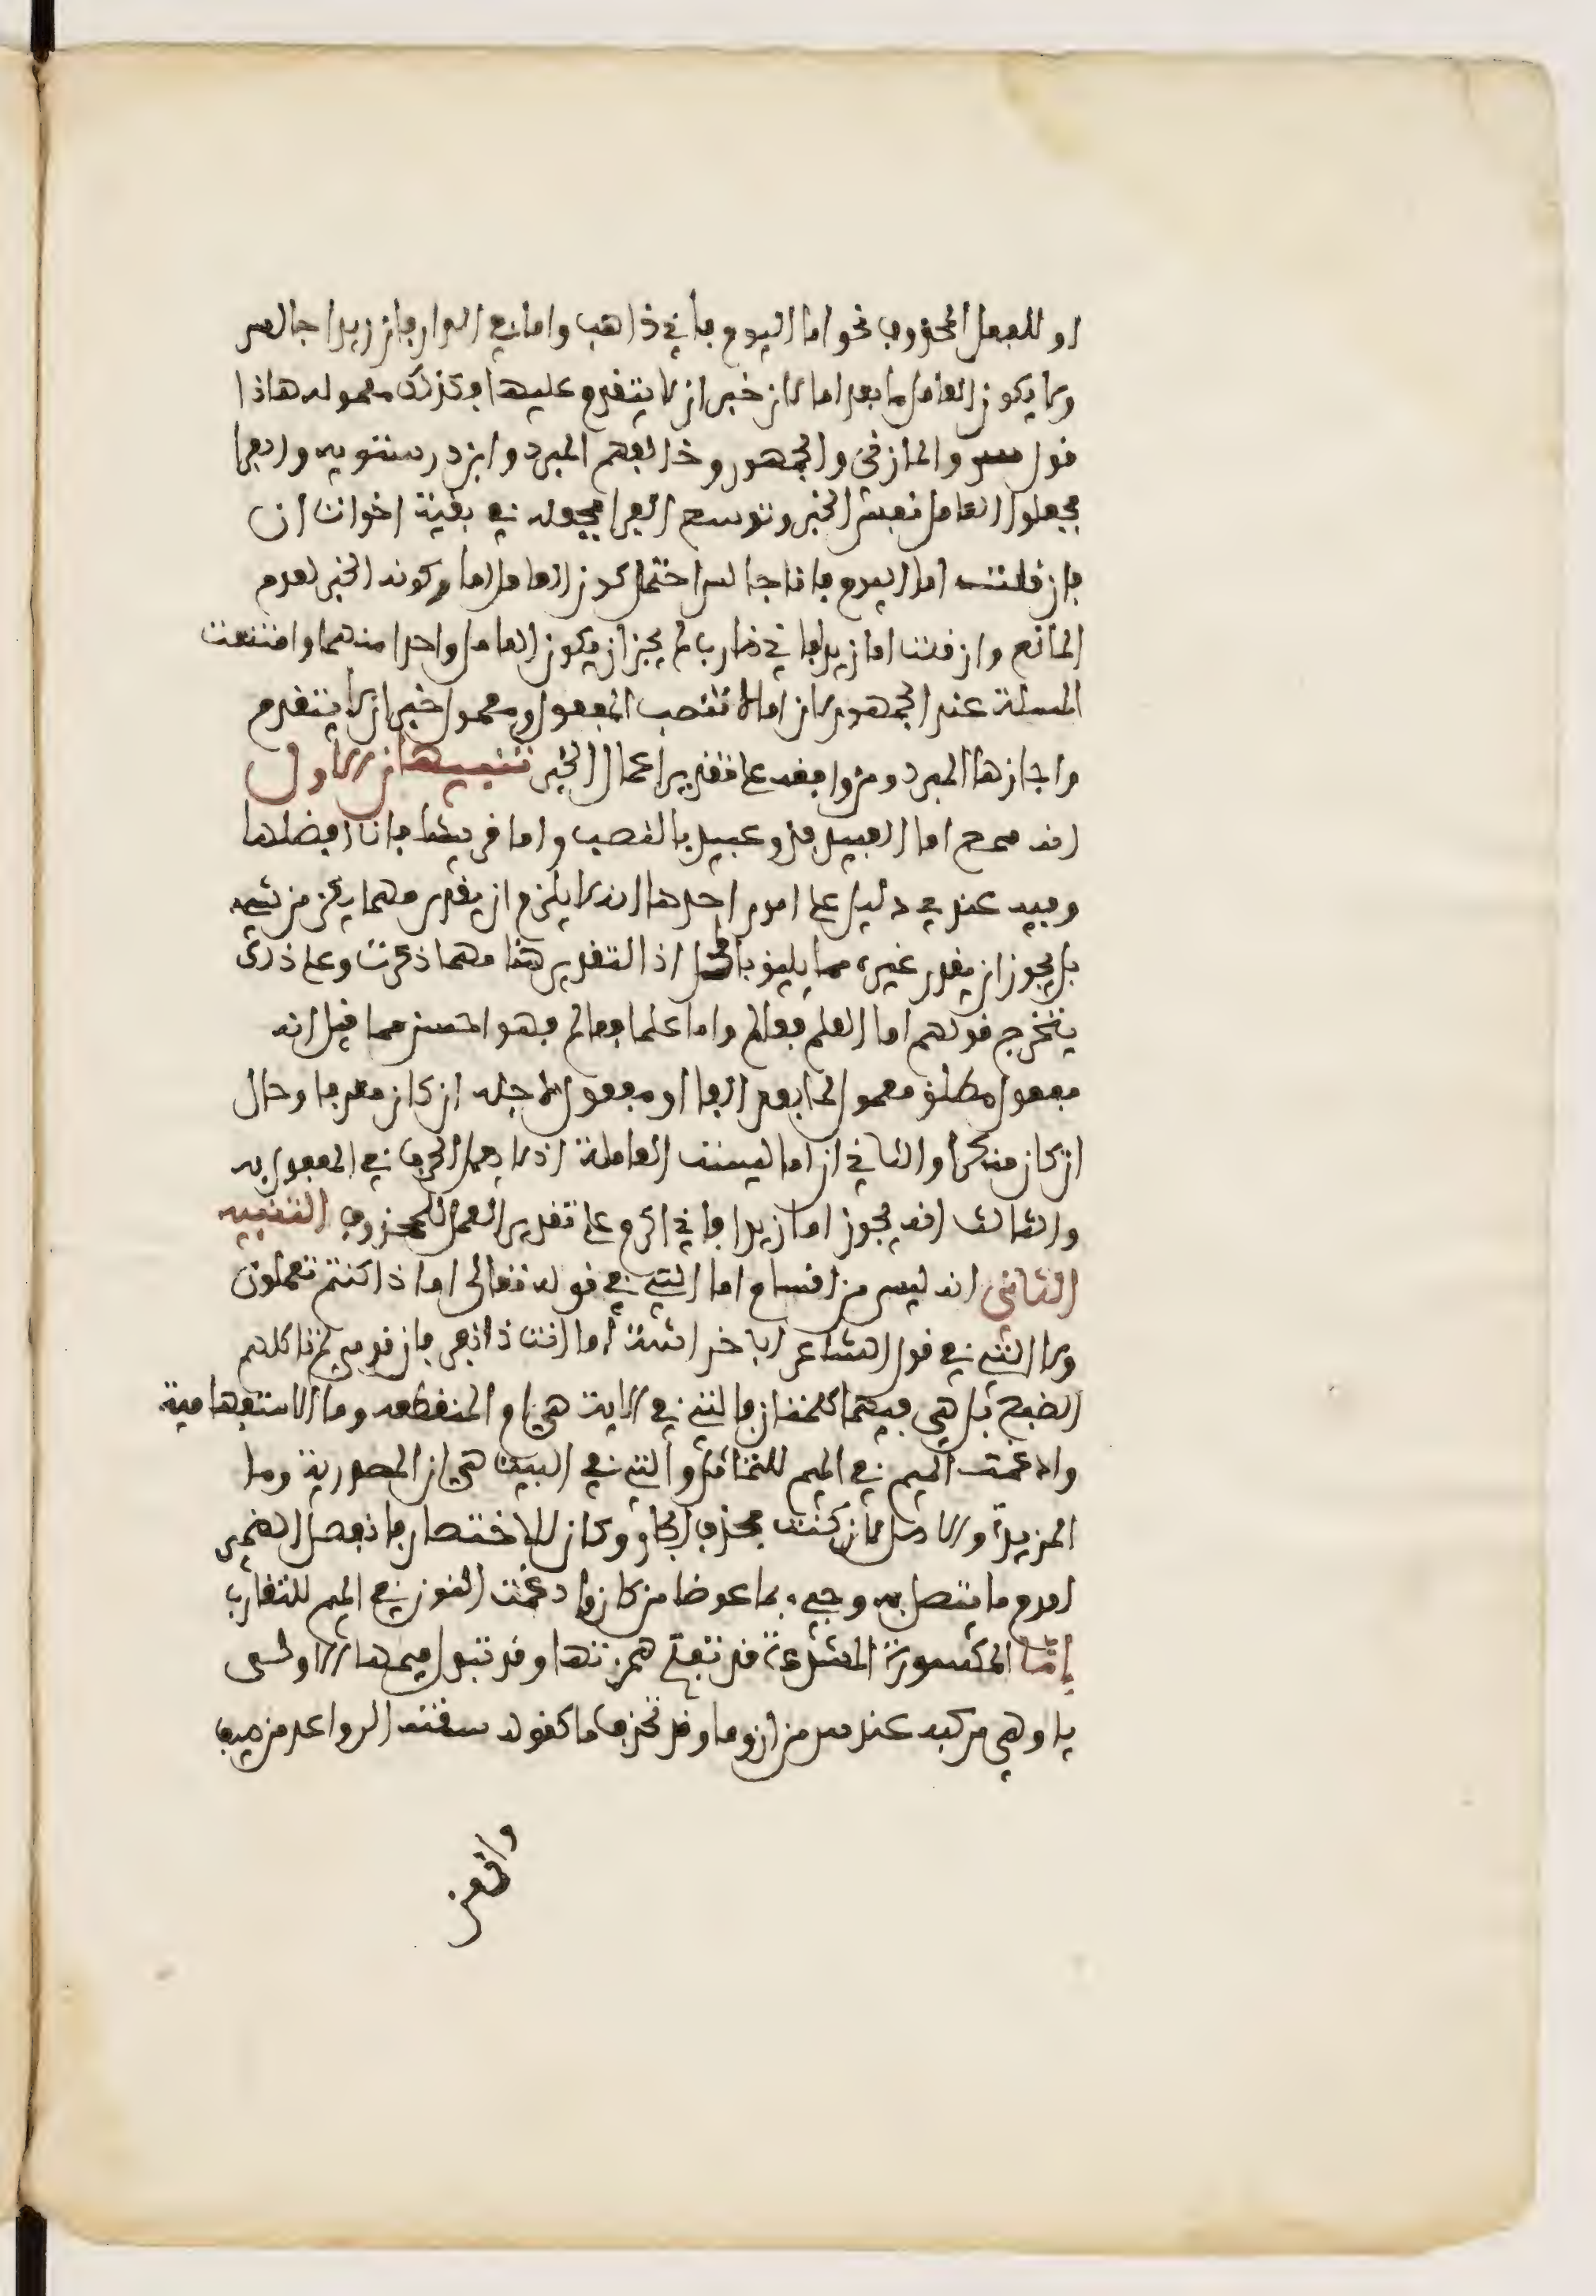 او للفعل المحذوف نحو اما اليوم فاني ذاهب واما في الدار فان زيدا جالس
ولا يكون العامل ما بعد اما لان خبر ان لا يتقدم عليها فكذلك معموله هاذا
قول س والمازني والجمهور وخالفهم المبرد وابن درستويه والفرا
فجعلوا العامل نفس الخبر وتوسع الفرا فجعله في بقية اخوات ان
فان قلت اما اليوم فانا جالس احتمل كون العامل اما وكونه الخبر لعدم
المانع وان قلت اما زيدا فاني ضارب لم يجز ان يكون العامل واحدا منهما وامتنعت
المسلة عند الجمهور لان اما لا تنصب المفعول ومعمول خبر ان لا يتقدم
واجازها المبرد ومن وافقه على تقدير اعمال الخبر تنبيهان الاول
انه سمع اما العبيد فذو عبيد بالنصب واما قريشا فانا افضلها
وفيه عندي دليل على امور احدها انه لا يلزم ان يقدر مهما يكن من شيء
بل يجوز ان يقدر غيره مما يليق بالمحل اذ التقدير هنا مهما ذكرت وعلى ذلك
يتخرج قولهم اما العلم فعالم واما علما فعالم فهو احسن مما قيل انه
مفعول مطلق معمول لما بعد الفا او مفعول لاجله ان كان معرفا وحال
ان كان منكرا والثاني ان اما ليست العاملة اذ لا يعمل الحرف في المفعول به
والثالث انه يجوز اما زيدا فاني اكرم على تقدير العمل للمحذوف التنبيه
الثاني انه ليس من اقسام اما التي في قوله تعالى اما ذا كنتم تعملون
ولا التي في قول الشاعر ابا خراشة اما انت ذا نفر فان قومي لم تاكلهم
الضبع بل هي فيهما كلمتان فالتي في الاية هي ام المنقطعه وما الاستفهامية
وادغمت الميم في الميم للتماثل والتي في البيت هي ان المصدرية وما
المزيدة والاصل لان كنت فحذف الجار وكان للاختصار فانفصل الضمير
لعدم ما يتصل به وجيء بما عوضا من كان وادغمت النون في الميم للتقارب
إمّا المكسورة المشددة قد تفتح همزتها وقد تبدل ميمها الاولى
يا وهي مركبه عند س من ان وما وقد تحذف ما كقوله سقته الرواعد من صيف
وان من